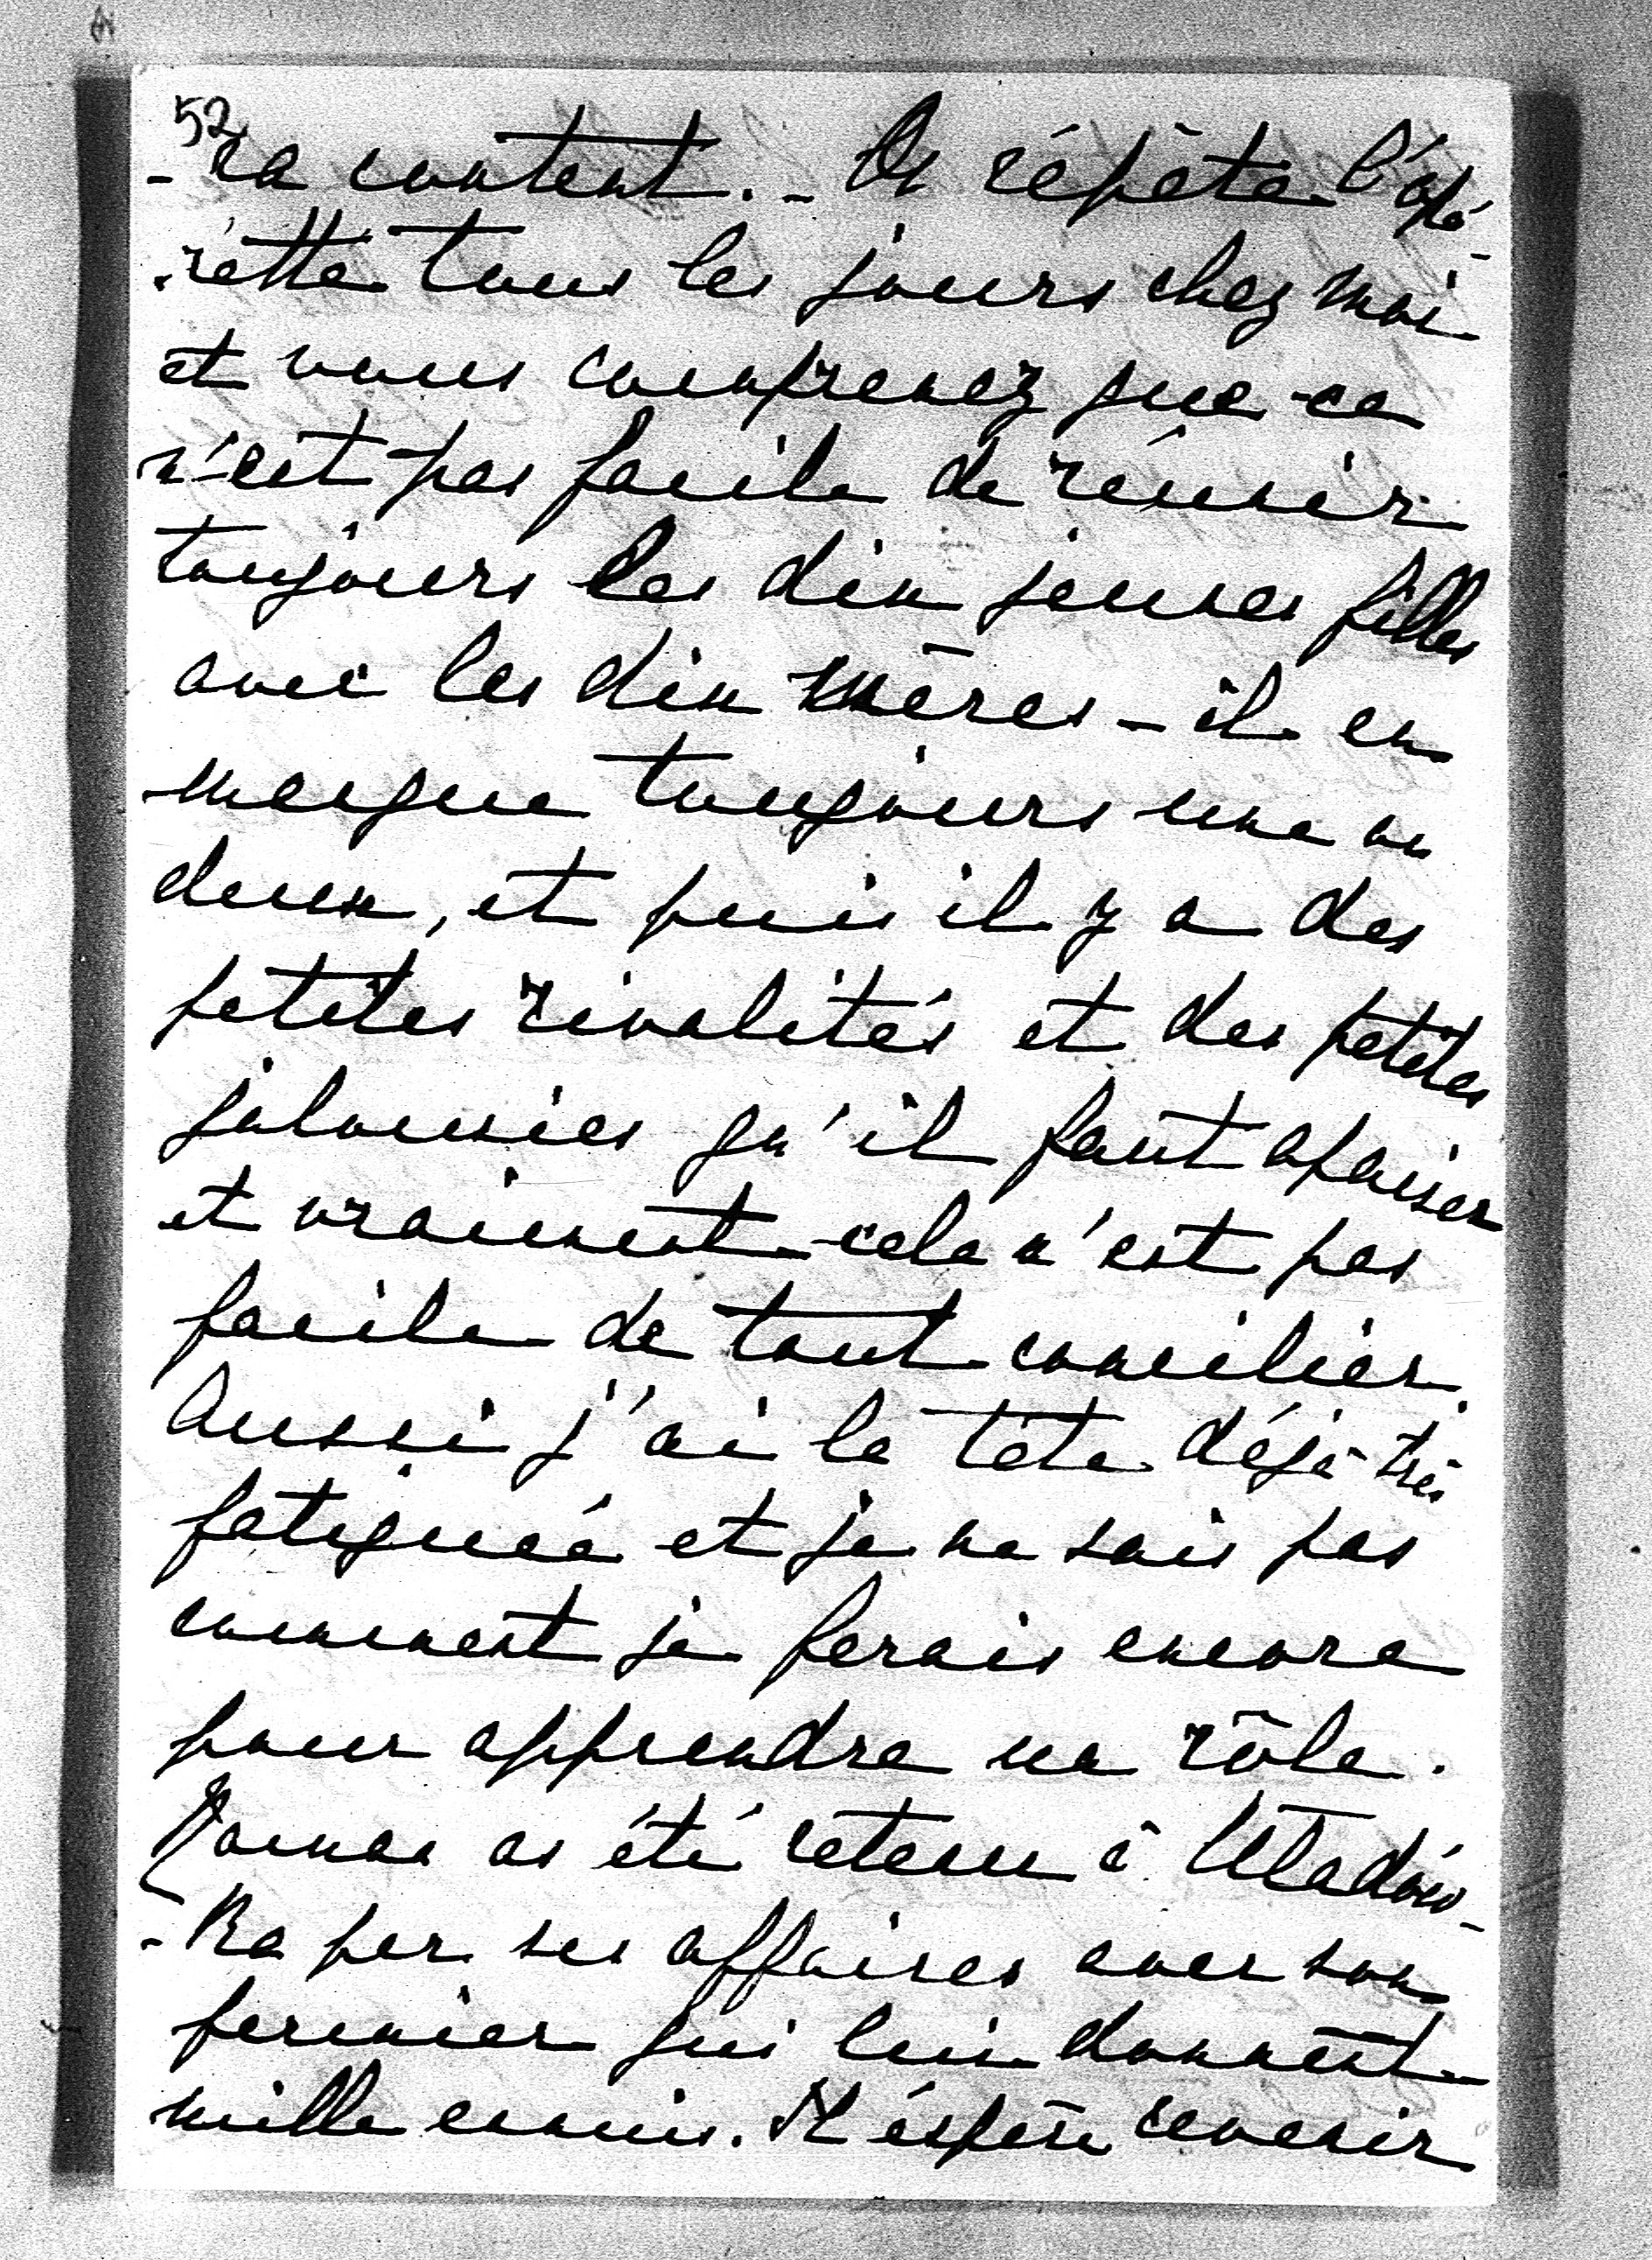 52
-ra content. - On répète l'opé-
-rette tous les jours chez moi
et vous comprenez que ce
n'est pas facile de réunir
toujours les dix jeunes filles
avec les dix mères - il en
manque toujours une ou
deux, et puis il y a des
petites rivalités et des petites
jalousies qu'il faut apaiser
et vraiment cela n'est pas
facile de tout concilier.
Aussi j'ai la tête déjà très
fatiguée et je ne sais pas
comment je ferais encore
pour apprendre un rôle.
as été retenu à Wladow-
-ka par ses affaires avec son
fermier qui lui donnent
mille ennuis. Il éspère revenir